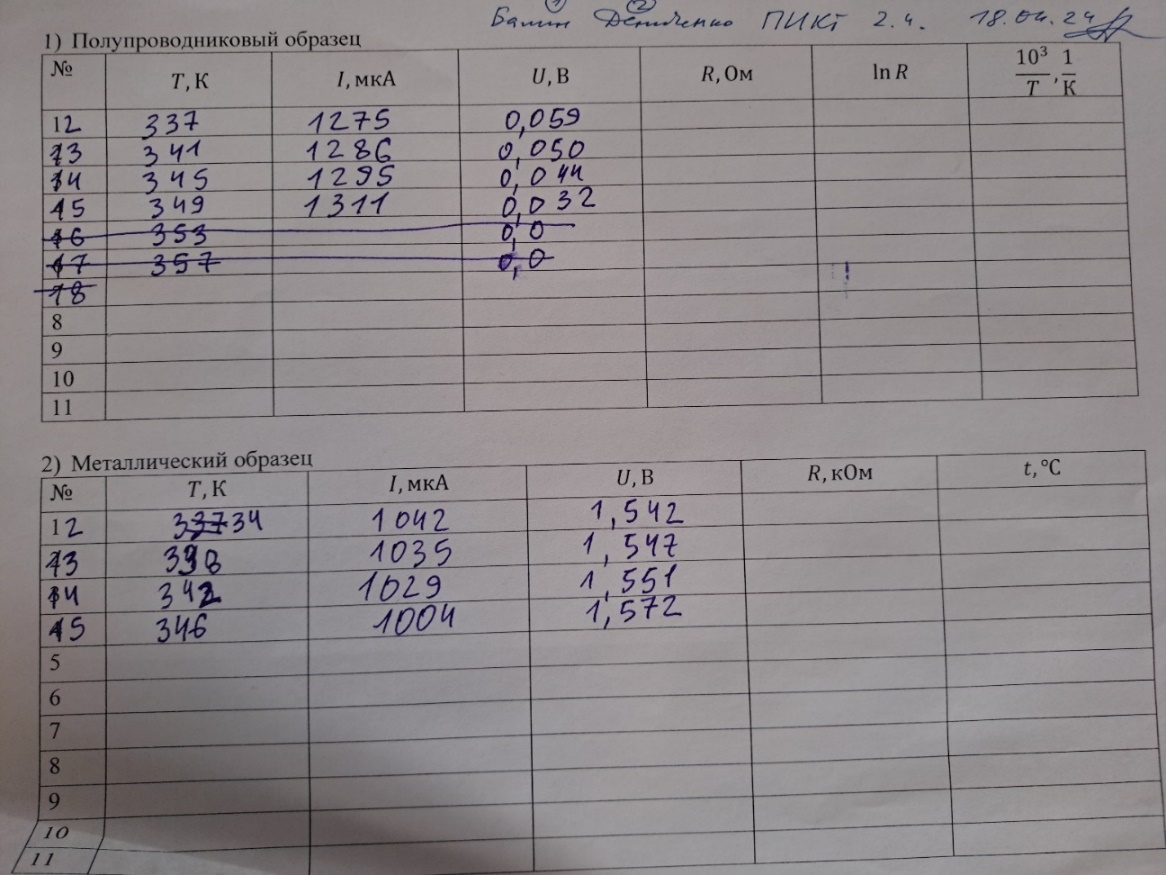 Балин Демиченко ПИКТ 2.4. 18.04.24
1) Полупроводниковый образец
№ T, К I, мкА U, В R, Ом ln R 10³/T, 1/К
12 337 1275 0,059
13 341 1286 0,050
14 345 1295 0,044
15 349 1311 0,032
16 353 0,0
17 357 0,0
18
8
9
10
11
2) Металлический образец
№ T, К I, мкА U, В R, кОм t, °C
12 334 1042 1,542
13 338 1035 1,547
14 342 1029 1,551
15 346 1004 1,572
5
6
7
8
9
10
11